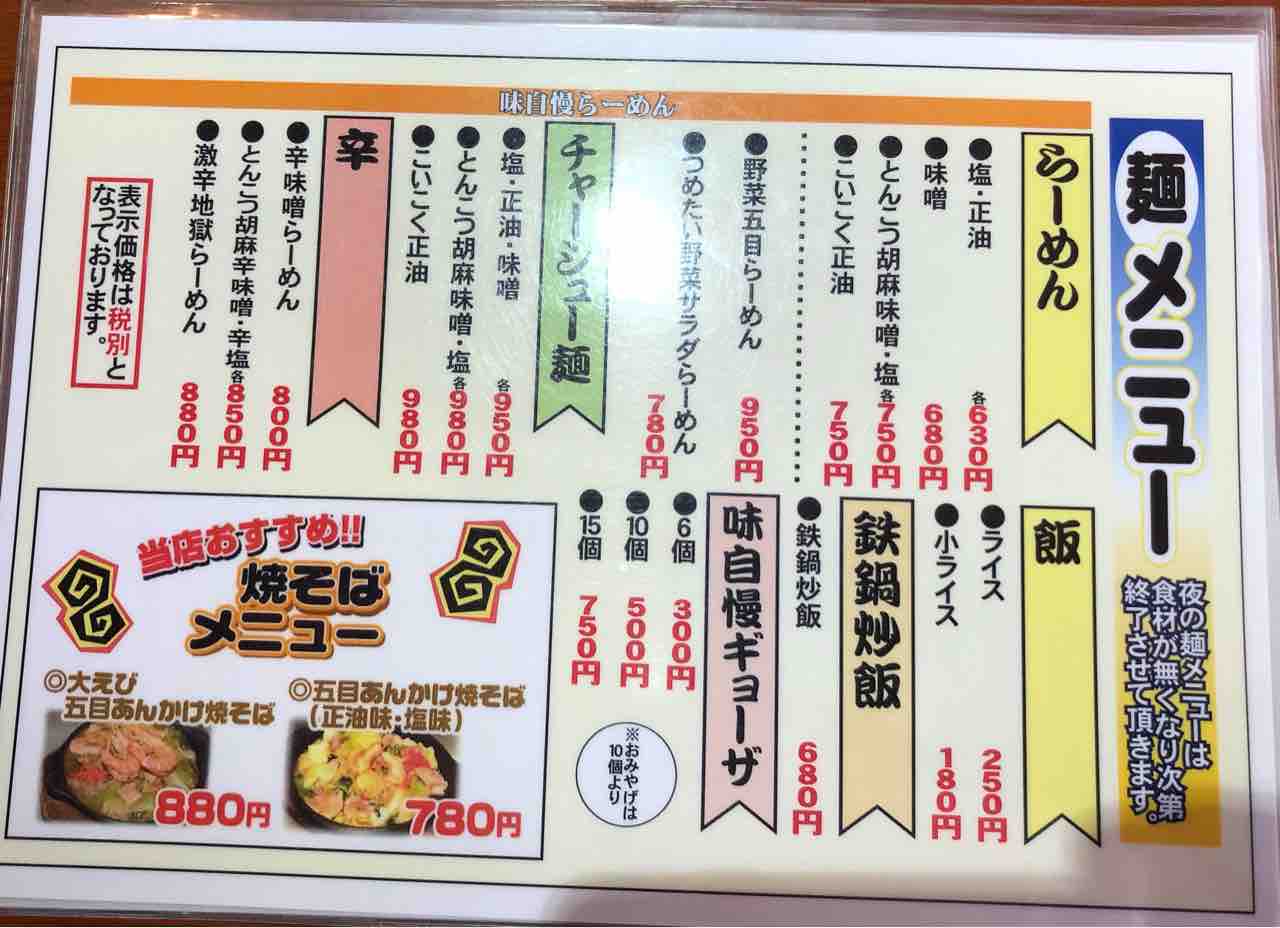 麺メニュー
夜の麺メニューは
食材が無くなり次第
終了させて頂きます。
味自慢らーめん
らーめん
●塩・正油 各630円
●味噌 680円
●とんこつ胡麻味噌・塩 各750円
●こいこく正油 750円
●野菜五目らーめん 950円
●つめたい野菜サラダらーめん 780円
チャーシュー麺
●塩・正油・味噌 各950円
●とんこつ胡麻味噌・塩 各980円
●こいこく正油 980円
辛
●辛味噌らーめん 800円
●とんこつ胡麻辛味噌・辛塩 各850円
●激辛地獄らーめん 880円
表示価格は税別と
なっております。
飯
●ライス 250円
●小ライス 180円
鉄鍋炒飯
●鉄鍋炒飯 680円
味自慢ギョーザ
●6個 300円
●10個 500円
●15個 750円
※おみやげは
10個より
当店おすすめ!!
焼そば
メニュー
◎大えび
五目あんかけ焼そば
880円
◎五目あんかけ焼そば
(正油味・塩味)
780円